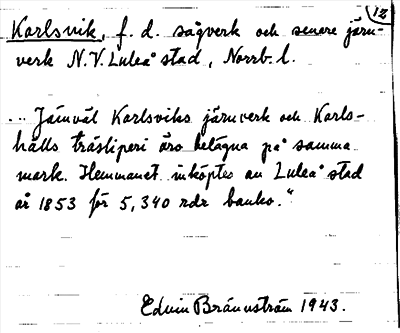 12
Karlsvik, f. d. sågverk och senare järn-
verk N.V. Luleå stad, Norrb. l.
... Jämväl Karlsviks järnverk och Karls-
hälls träsliperi äro belägna på samma
mark. Hemmanet inköptes av Luleå stad
år 1853 för 5,340 rdr banko."
Edvin Brännström 1943.